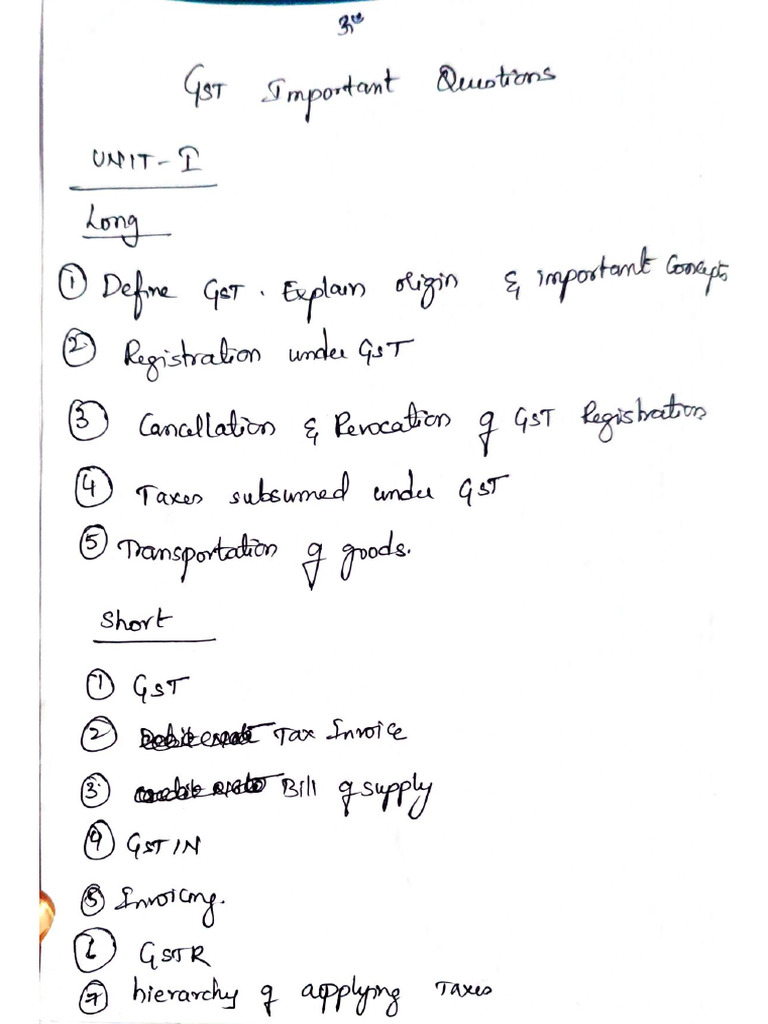 ఓం
GST Important Questions
UNIT - I
Long
① Define GST. Explain origin & important Concepts
② Registration under GST
③ Cancallation & Revocation of GST Registration
④ Taxes subsumed under GST
⑤ Transportation of goods.
Short
① GST
② Tax Invoice
③ Bill of supply
④ GSTIN
⑤ Invoicing.
⑥ GSTR
⑦ hierarchy of applying Taxes